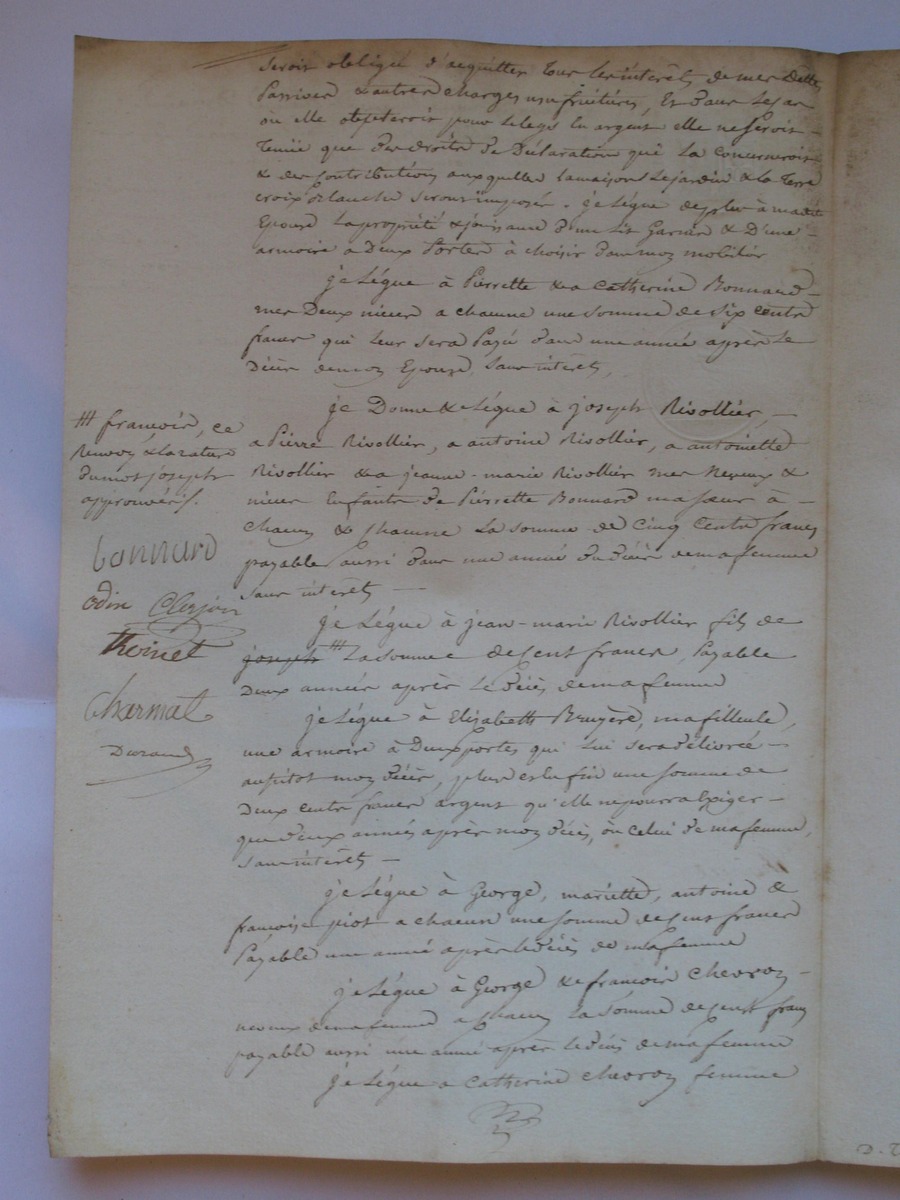 seroit obligée d'acquitter tous les interets de mes dettes
Passives & autres charges usufruitières, Et dans le cas
ou elle opteroit pour le legs en argent elle ne seroit
Tenüe que des droits de Déclaration qui la concerneroit
& des contributions auxquelles la maison le jardin & la Terre
croix blanche seront imposés. je Légue de plus à madite
Epouse la propriété & jouissance d'un Lit Garni & D'une
armoire a Deux Portes à choisir dans mon mobilier
je Légue à Pierrette & a Catherine Bonnard
mes Deux nieces a chacune une somme de six cents
francs qui leur sera Payé dans une année après le
Décès de mon Epouse, sans intérêts,
je Donne & Légue à joseph Rivollier,
a Pierre Rivollier, a antoine Rivollier, a antoinette
Rivollier & a jeanne-marie Rivollier mes Neveux &
nieces Enfants de Pierrette Bonnard ma sœur à
chacun & chacune La somme de Cinq Cents francs
payable aussi dans une année du décès de ma femme
sans intérêts
je Légue à jean-marie Rivollier fils de
joseph La somme de Cent francs Payable
Deux années après le décès de ma femme
je Légue à Elizabeth Bruyère, ma filleule,
une armoire à Deux portes qui lui sera délivrée
aussitot mon décès, plus enfin une somme de
Deux cents francs argent qu'elle ne pourra Exiger
que deux années après mon décès, ou celui de ma femme,
sans intérêts
je Légue à George, mariette, antoine &
françoise piot a chacun une somme de Cent francs
Payable une année après le décès de ma femme
je Légue à George & françois Chevron
neveux de ma femme a chacun La somme de Cent francs
payable aussi une année après le décès de ma femme
je Légue a Catherine Chevron femme
françois, ce
Renvoy & la rature
du mot joseph
approuvés.
bonnard
odin Clerjon
Thoinet
Charmat
Durand